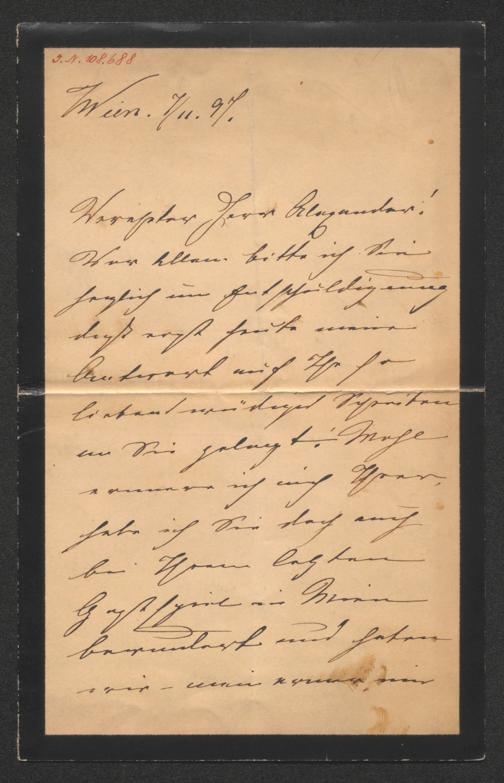 J.N. 108.688
Wien. 7/11. 97.
Verehrter Herr Alexander!
Vor Allem bitte ich Sie
herzlich um Entschuldigung
daß erst heute meine
Antwort auf Ihr so
liebenswürdiges Schreiben
an Sie gelangt! Wohl
erinnere ich mich Ihrer,
habe ich Sie doch auch
bei Ihrem letzten
Gastspiel in Wien
bewundert und haben
wir – mein armer